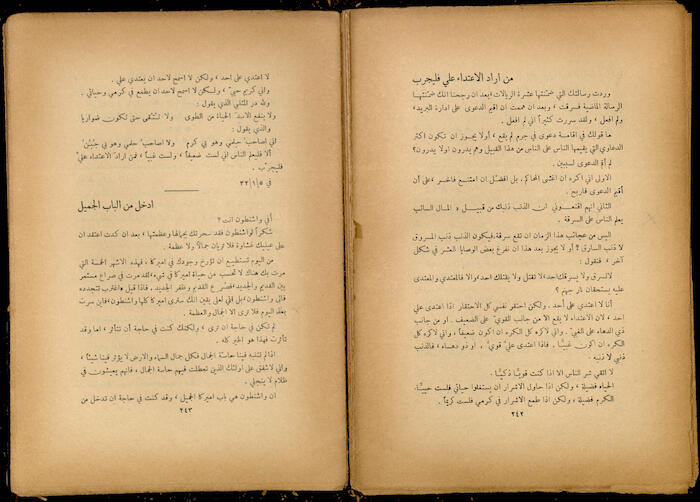 من اراد الاعتداء علي فليجرب
وردت رسالتك التي ضمنتها عشرة الريالات، بعد ان رجحنا انك ضمنتها
الرسالة الماضية فسرقت، وبعد ان هممت ان اقيم الدعوى على ادارة البريد،
ولم افعل، ولقد سررت كثيراً اني لم افعل.
ما قولك في اقامة دعوى في جرم لم يقع، أولا يجوز ان تكون اكثر
الدعاوي التي يقيمها الناس على الناس من هذا القبيل وهم يدرون اولا يدرون؟
لم أقم الدعوى لسببين.
الاولى اني اكره ان اخشى المحاكم، بل افضل ان امتنع فاخسر، على أن
أقيم الدعوى فاربح.
الثاني انهم اقنعوني ان الذنب ذنبك من قبيل « المال السائب
يعلم الناس على السرقة.
اليس من عجائب هذا الزمان ان تقع سرقة، فيكون الذنب ذنب المسروق
لا ذنب السارق؟ أو لا يجوز بعد هذا ان نفرغ بعض الوصايا العشر في شكل
آخر، فنقول:
لاتسرق ولا يسرقك احد، لا تقتل ولا يقتلك احد، والا فالمعتدي والمعتدى
عليه يستحقان نار جهنم؟
أنا لا اعتدي على أحد. ولكن احتقر نفسي كل الاحتقار اذا اعتدى علي
احد، لان الاعتداء لا يقع الا من جانب القوي على الضعيف. او من جانب
ذي الدهاء على الغبي. واني لاكره كل الكره ان اكون ضعيفاً، واني لاكره كل
الكره ان اكون غبياً. فاذا اعتدى علي قوي، او ذو دهاء، فالذنب
ذنبي لا ذنبه.
لا اتقي شر الناس الا اذا كنت قوياً ذكياً.
الحياء فضيلة، ولكن اذا حاول الاشرار ان يستغلوا حيائي فلست حيياً.
الكرم فضيلة، ولكن اذا طمع الاشرار في كرمي فلست كريماً.
٢٤٢
لا اعتدي على احد، ولكن لا اسمح لاحد ان يعتدي علي.
واني كريم حيي، ولكن لا اسمح لاحد ان يطمع في كرمي وحيائي.
ولله در المتنبي الذي يقول:
ولا ينفع الاسد الحياء من الطوى ولا تتقى حتى تكون ضواريا
والذي يقول:
اني اصاحب حلمي وهو بي كرم ولا اصاحب حلمي وهو بي جبن
ألا فليعلم الناس اني لست ضعيفاً، ولست غبياً، فمن اراد الاعتداء علي
فليجرب.
في ٣٢/١/٥
ادخل من الباب الجميل
أفي واشنطون انت؟
شكراً لواشنطون فقد سحرتك بجمالها وعظمتها، بعد ان كدت اعتقد ان
على عينيك غشاوة فلا تريان جمالاً ولا عظمة.
من اليوم تستطيع ان تؤرخ وجودك في اميركا، فهذه الاشهر الخمسة التي
مرت بك هناك لا تحسب من حياة اميركا في شيء، لقد مرت في صراع مستمر
بين القديم والجديد، فصرع القديم وظفر الجديد. فاذا قيل «اغترب تتجدد»
فالى واشنطون، بل إني لعلى يقين انك سترى اميركا كلها واشنطون، فاين سرت
بعد اليوم فلا ترى الا الجمال والعظمة.
لم تكن في حاجة ان ترى، ولكنك كنت في حاجة أن تتأثر، اما وقد
تأثرت فهذا هو الخير كله.
اذا لم تنتبه فينا حاسة الجمال فكل جمال السماء والارض لا يؤثر فينا شيئاً،
واني لاشفق على اولئك الذين تعطلت فيهم حاسة الجمال، فانهم يعيشون في
ظلام لا ينجلي.
ان واشنطون هي باب اميركا الجميل، وقد كنت في حاجة ان تدخل من
٢٤٣